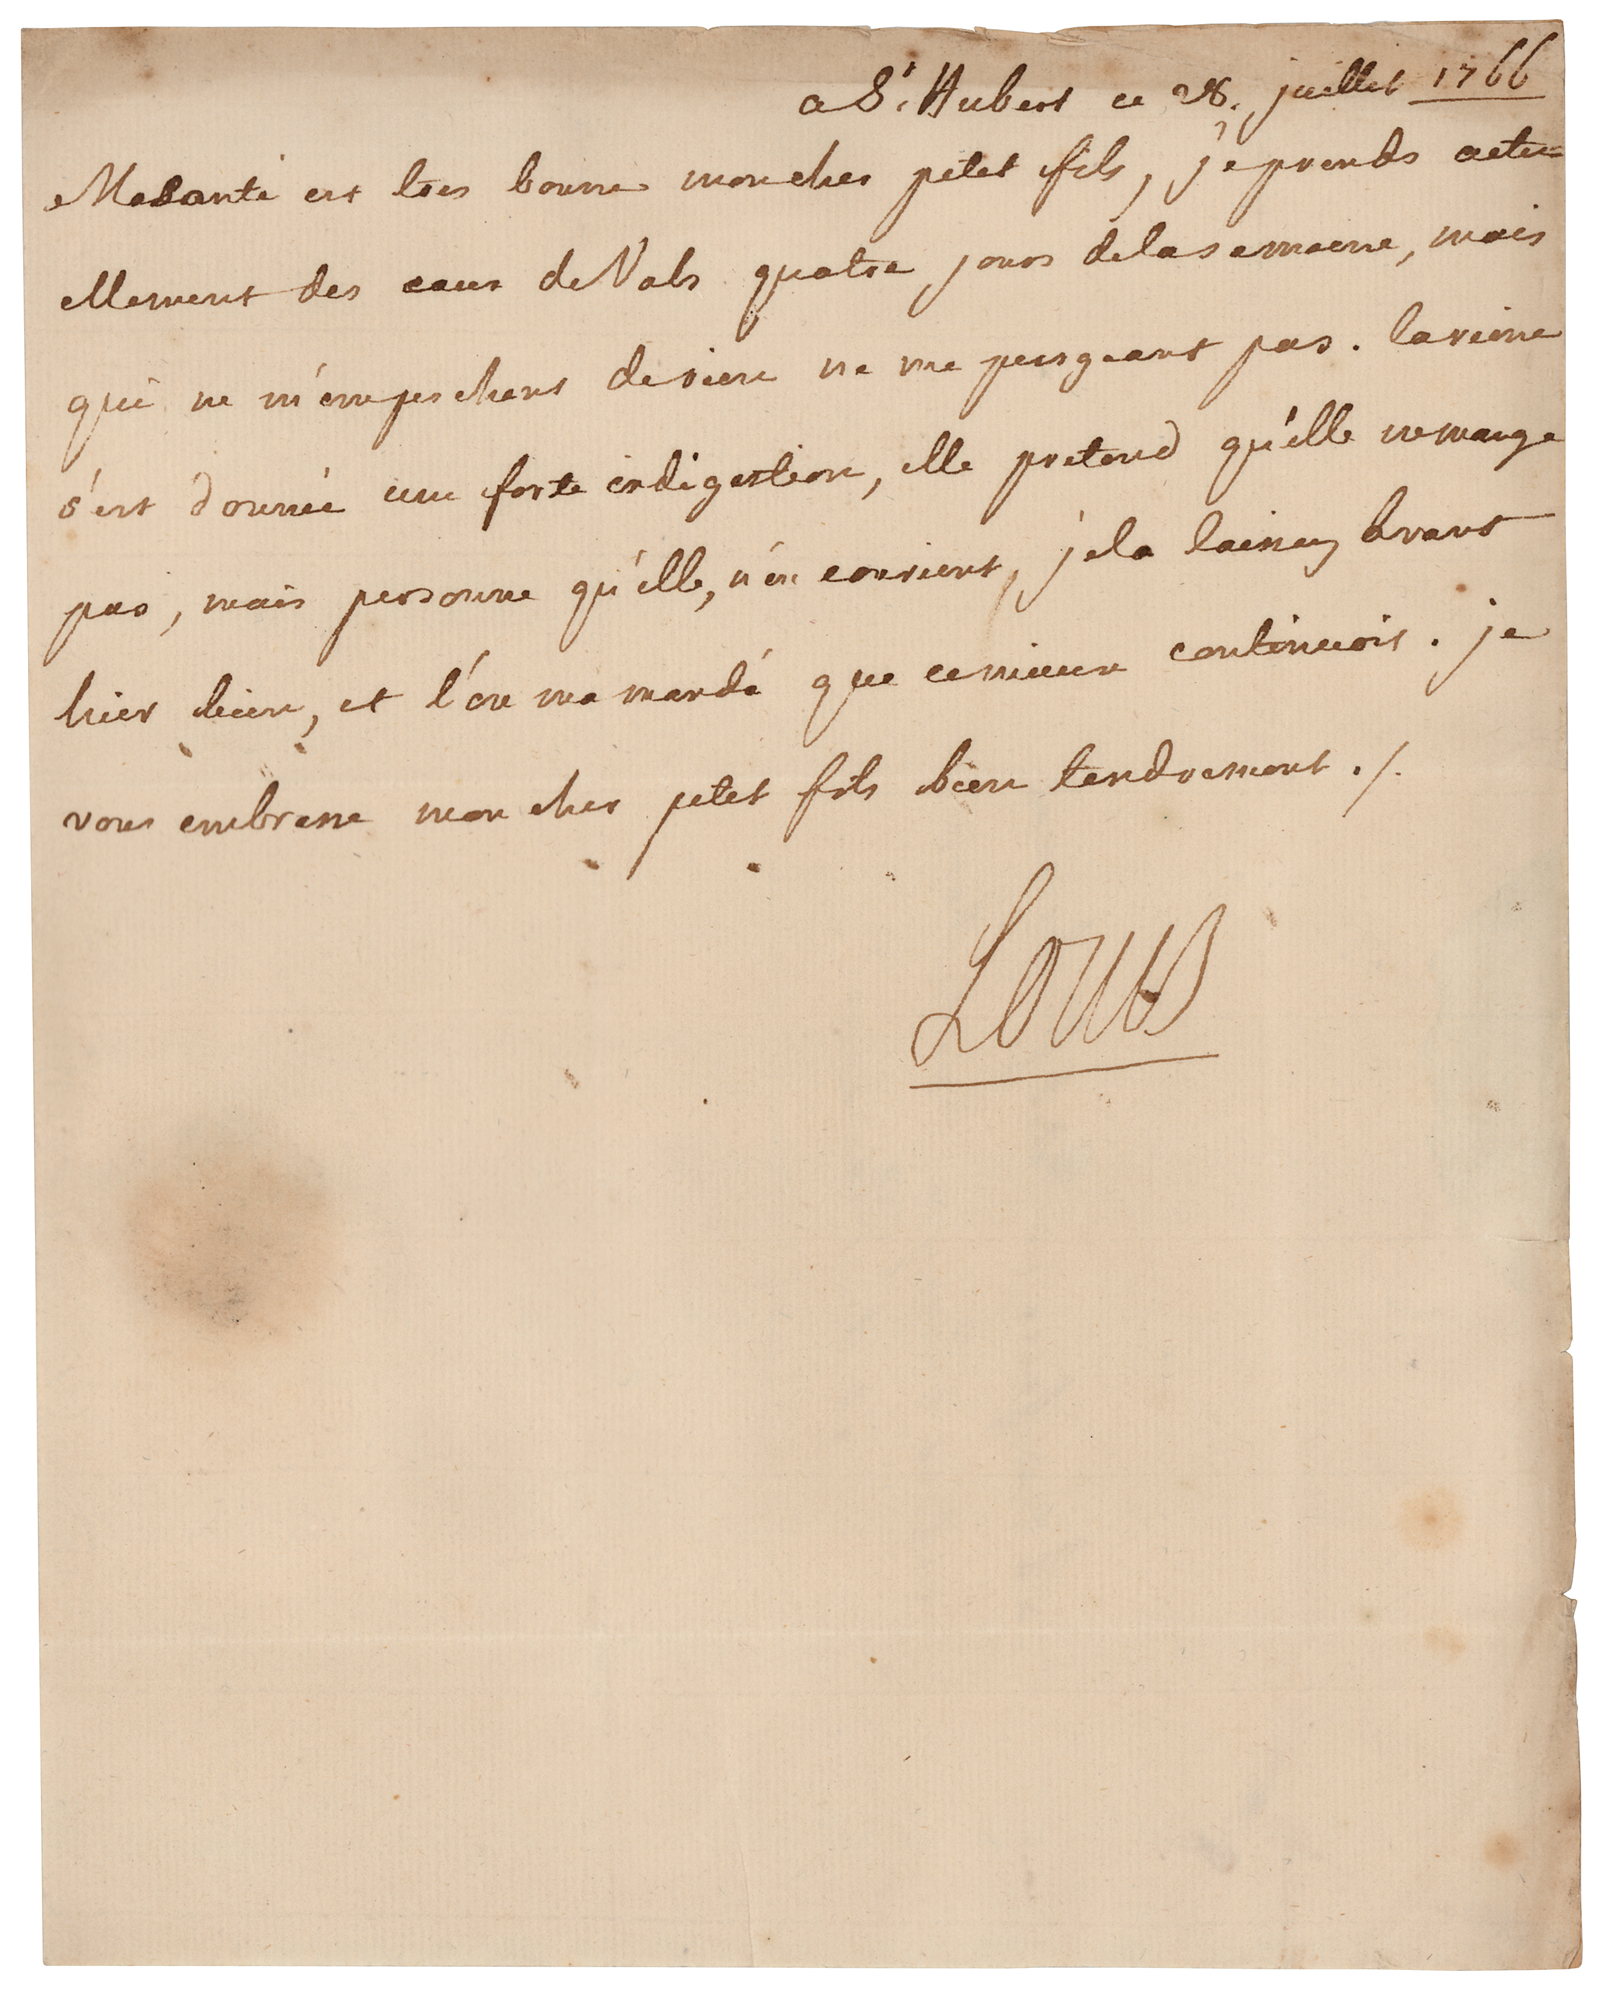 a S.t Hubert ce 28. juillet 1766
Ma santé est tres bonne mon cher petit fils, je prends actu=
ellement des eaux de Vals quatre jours de la semaine, mais
qui ne m'empeschent de rien ne me purgeant pas. la reine
s'est donnée une forte indigestion, elle pretend qu'elle ne mange
pas, mais personne qu'elle, n'en convient, je la laissay avant
hier bien, et l'on ma mandé que ce mieux continuoit. je
vous embrasse mon cher petit fils bien tendrement ./.
Louis